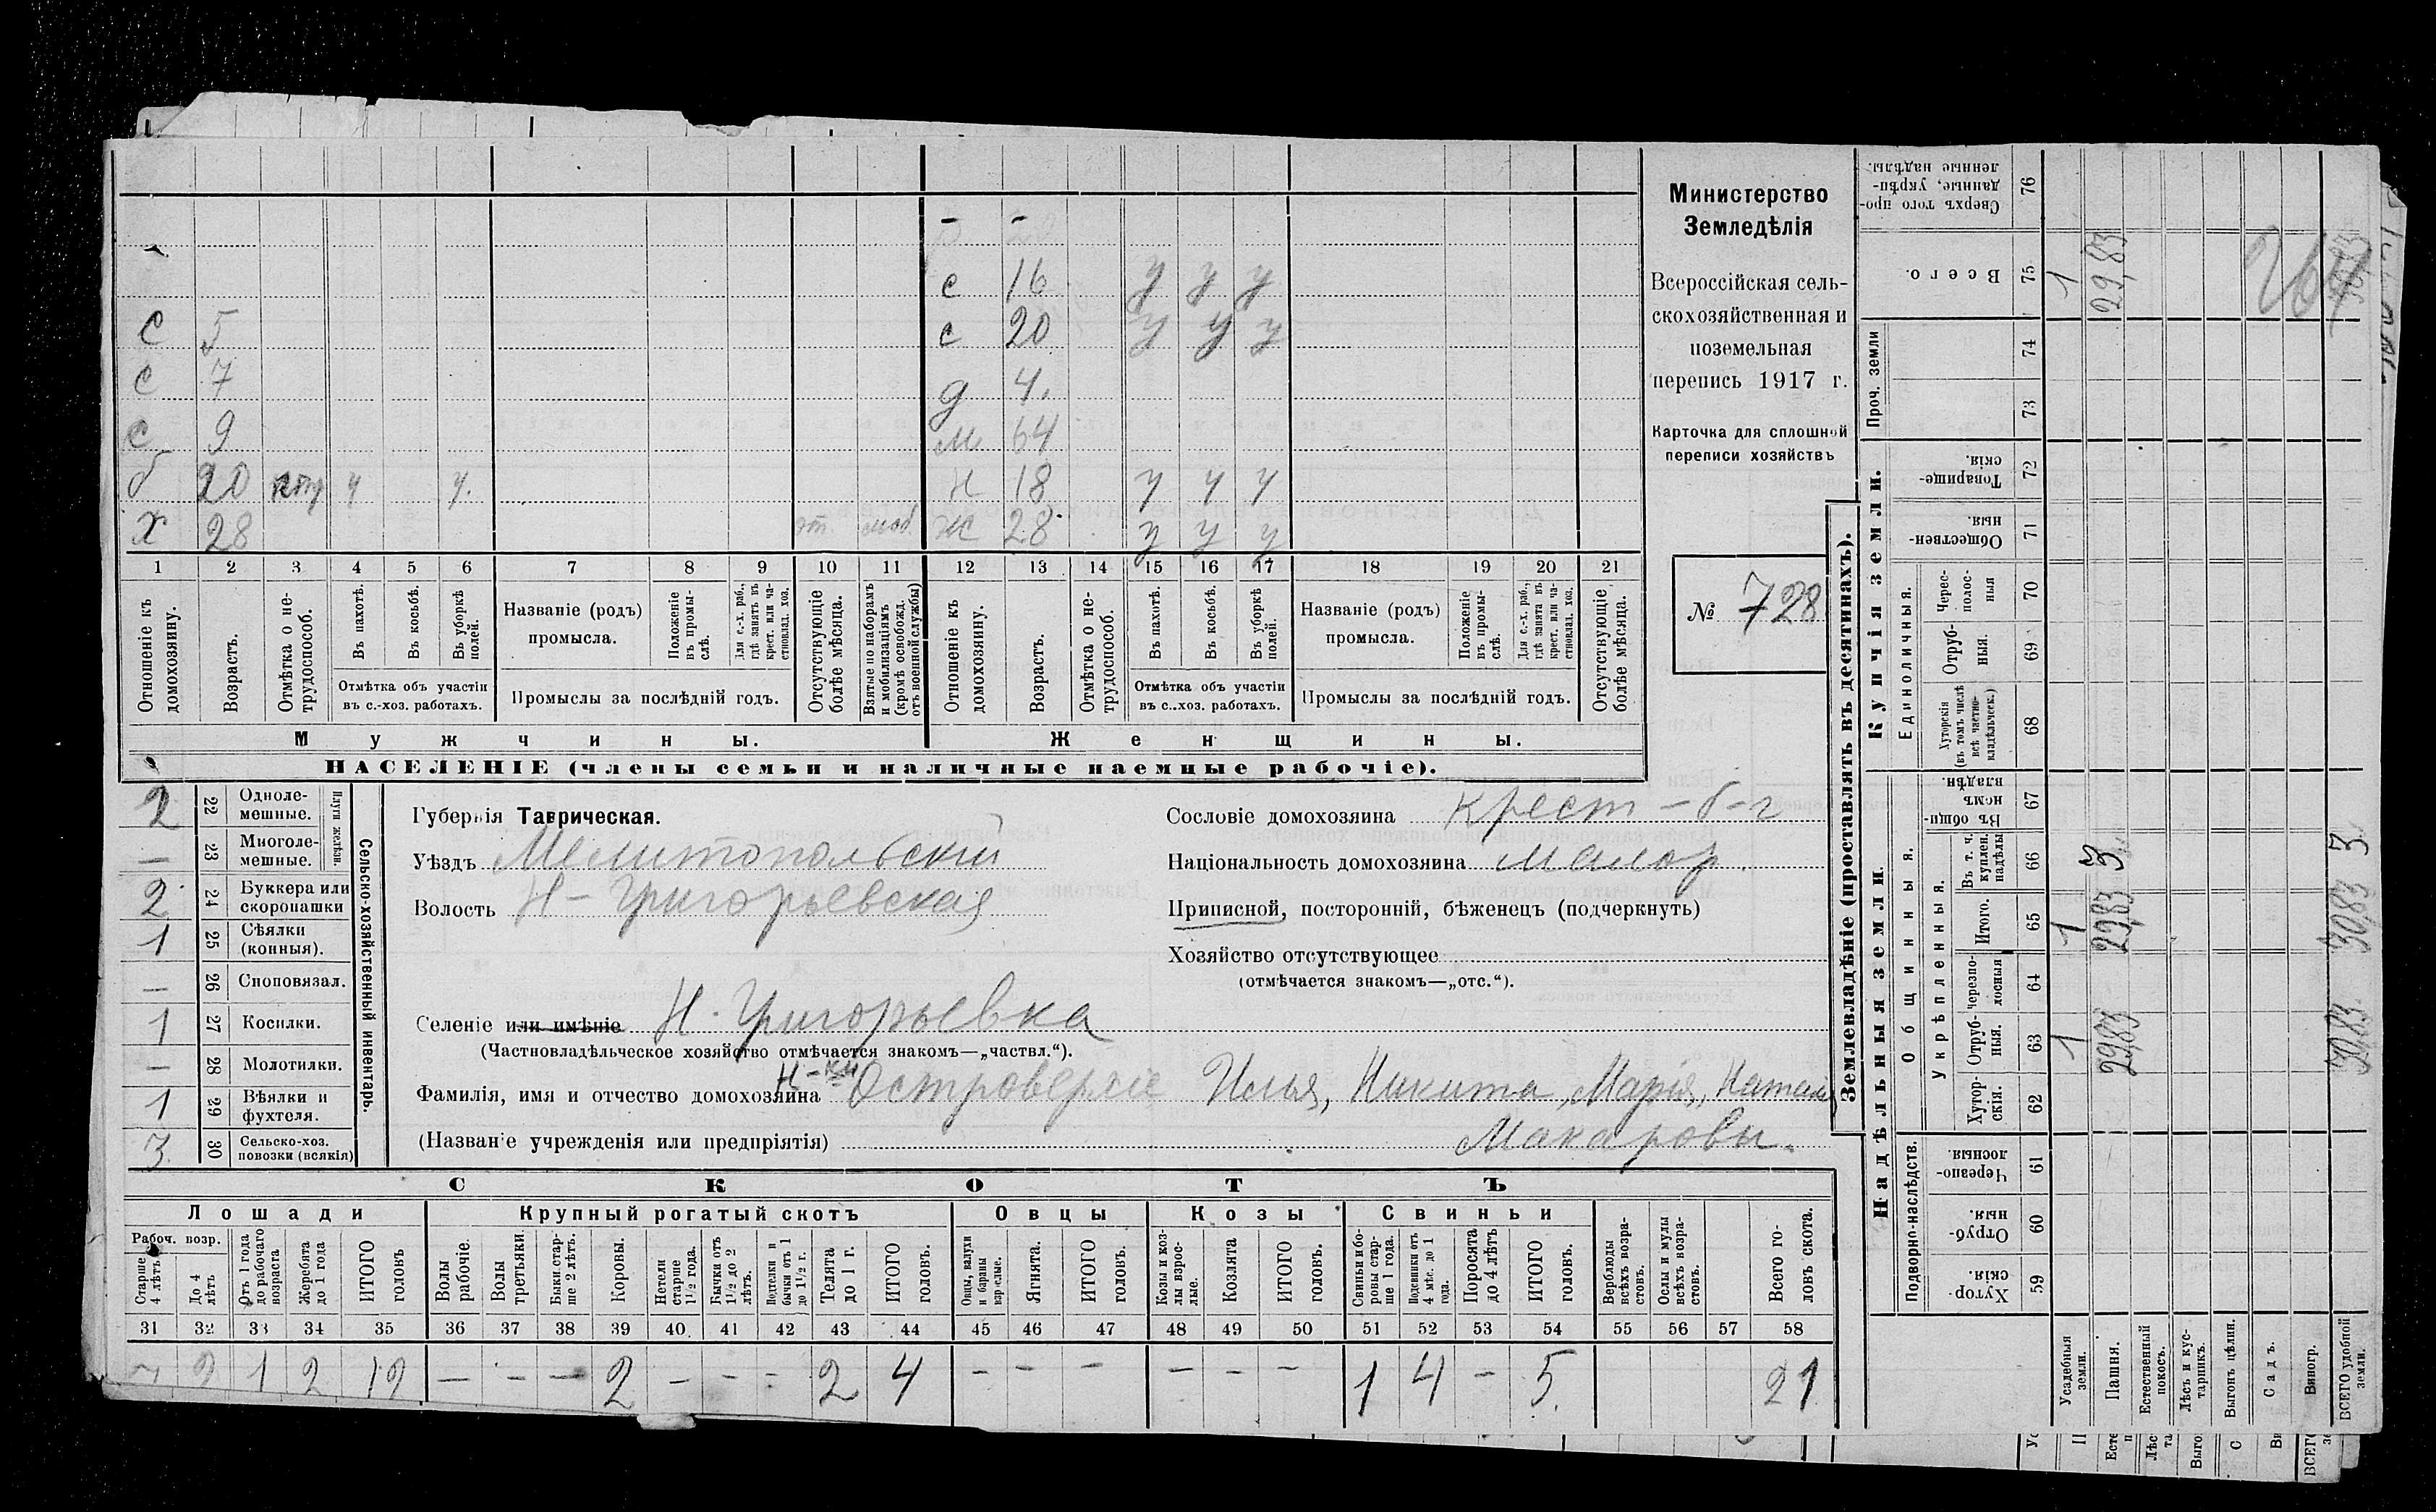 - -
с 16 у у у
С 5 с 20 у у у
С 7 д 4.
С 9 м 64
б 20 у у. н 18 у у у
Х 28 от. моб. ж 28 у у у
1 2 3 4 5 6 7 8 9 10 11 12 13 14 15 16 17 18 19 20 21
Отношеніе къ домохозяину.
Возрастъ.
Отмѣтка о не-трудоспособ.
Въ пахотѣ.
Въ косьбѣ.
Въ уборкѣ полей.
Отмѣтка объ участіи въ с.-хоз. работахъ.
Названіе (родъ) промысла.
Положеніе въ промы-слѣ.
Для с.-х. раб., гдѣ занятъ въ крест. или ча-стновлад. хоз.
Промыслы за послѣдній годъ.
Отсутствующіе болѣе мѣсяца.
Взятые по наборамъ и мобилизаціямъ (кромѣ освобожд. отъ военной службы)
Отношеніе къ домохозяину.
Возрастъ.
Отмѣтка о не-трудоспособ.
Въ пахотѣ.
Въ косьбѣ.
Въ уборкѣ полей.
Отмѣтка объ участіи въ с.-хоз. работахъ.
Названіе (родъ) промысла.
Положеніе въ промы-слѣ.
Для с.-х. раб., гдѣ занята въ крест. или ча-стновлад. хоз.
Промыслы за послѣдній годъ.
Отсутствующіе болѣе мѣсяца.
Мужчины. Женщины.
НАСЕЛЕНІЕ (члены семьи и наличные наемные рабочіе).
Министерство
Земледѣлія
Всероссійская сель-
скохозяйственная и
поземельная
перепись 1917 г.
Карточка для сплошной
переписи хозяйствъ
№ 728
Сельско-хозяйственный инвентарь.
Плуги желѣзн.
2 22 Одноле-мешные.
— 23 Многоле-мешные.
2 24 Буккера или скоропашки
1 25 Сѣялки (конныя).
— 26 Сноповязал.
1 27 Косилки.
— 28 Молотилки.
1 29 Вѣялки и фухтеля.
3 30 Сельско-хоз. повозки (всякія)
Губернія Таврическая.
Уѣздъ Мелитопольскій
Волость Н-Григорьевская
Селеніе или имѣніе Н. Григорьевка
(Частновладѣльческое хозяйство отмѣчается знакомъ—„частвл.“).
Н-ки
Фамилія, имя и отчество домохозяина Островерхіе Илья, Никита, Марія, Наталія
(Названіе учрежденія или предпріятія) Макаровы.
Сословіе домохозяина крест-б-г
Національность домохозяина малор.
Приписной, посторонній, бѣженецъ (подчеркнуть)
Хозяйство отсутствующее
(отмѣчается знакомъ—„отс.“).
СКОТЪ
Лошади Крупный рогатый скотъ Овцы Козы Свиньи
Рабоч. возр.
Старше 4 лѣтъ
До 4 лѣтъ
Отъ 1 года до рабочаго возраста
Жеребята до 1 года
ИТОГО головъ
Волы рабочіе.
Волы третьяки.
Быки стар-ше 2 лѣтъ.
Коровы.
Нетели старше 1½ года.
Бычки отъ 1½ до 2 лѣтъ.
Подтелки и бычки отъ 1 до 1½ г.
Телята до 1 г.
ИТОГО головъ.
Овцы, валухи и бараны взрослые.
Ягнята.
ИТОГО головъ.
Козы и коз-лы взрос-лые.
Козлята
ИТОГО головъ.
Свиньи и бо-ровы стар-ше 1 года.
Подсвинки отъ 4 мѣс. до 1 года.
Поросята до 4 лѣтъ
ИТОГО головъ.
Верблюды всѣхъ возра-стовъ.
Ослы и мулы всѣхъ возра-стовъ.
Всего го-ловъ скота.
31 32 33 34 35 36 37 38 39 40 41 42 43 44 45 46 47 48 49 50 51 52 53 54 55 56 57 58
7 2 1 2 12 — - — 2 - - - 2 4 - - - - - - 1 4 - 5. 21
Землевладѣніе (проставлять въ десятинахъ).
Надѣльныя земли. Купчія земли.
Подворно-наслѣдств.
Общинныя.
Укрѣпленныя.
Единоличныя.
Проч. земли
Хутор-скія. 59
Отруб-ныя. 60
Черезпо-лосныя 61
Хутор-скія. 62
Отруб-ныя. 63
черезпо-лосныя 64
Итого. 65
Въ т. ч. куплен. надѣлы 66
Въ общин-номъ владѣн. 67
Хуторскія (въ томъ числѣ всѣ частно-владѣльческ.) 68
Отруб-ныя. 69
Черес-полос-ныя 70
Обществен-ныя. 71
Товарище-скія. 72
73
74
Всего. 75
Сверхъ того про-данные, укрѣп-ленные надѣлы. 76
Усадебныя земли. 1 1 1
Пашня. 29,83 29,83 3 29,83
Естественный покосъ.
Лѣсъ и кус-тарникъ.
Выгонъ цѣлин.
Садъ.
Виногр.
ВСЕГО удобной земли. 30,83 30,83 3